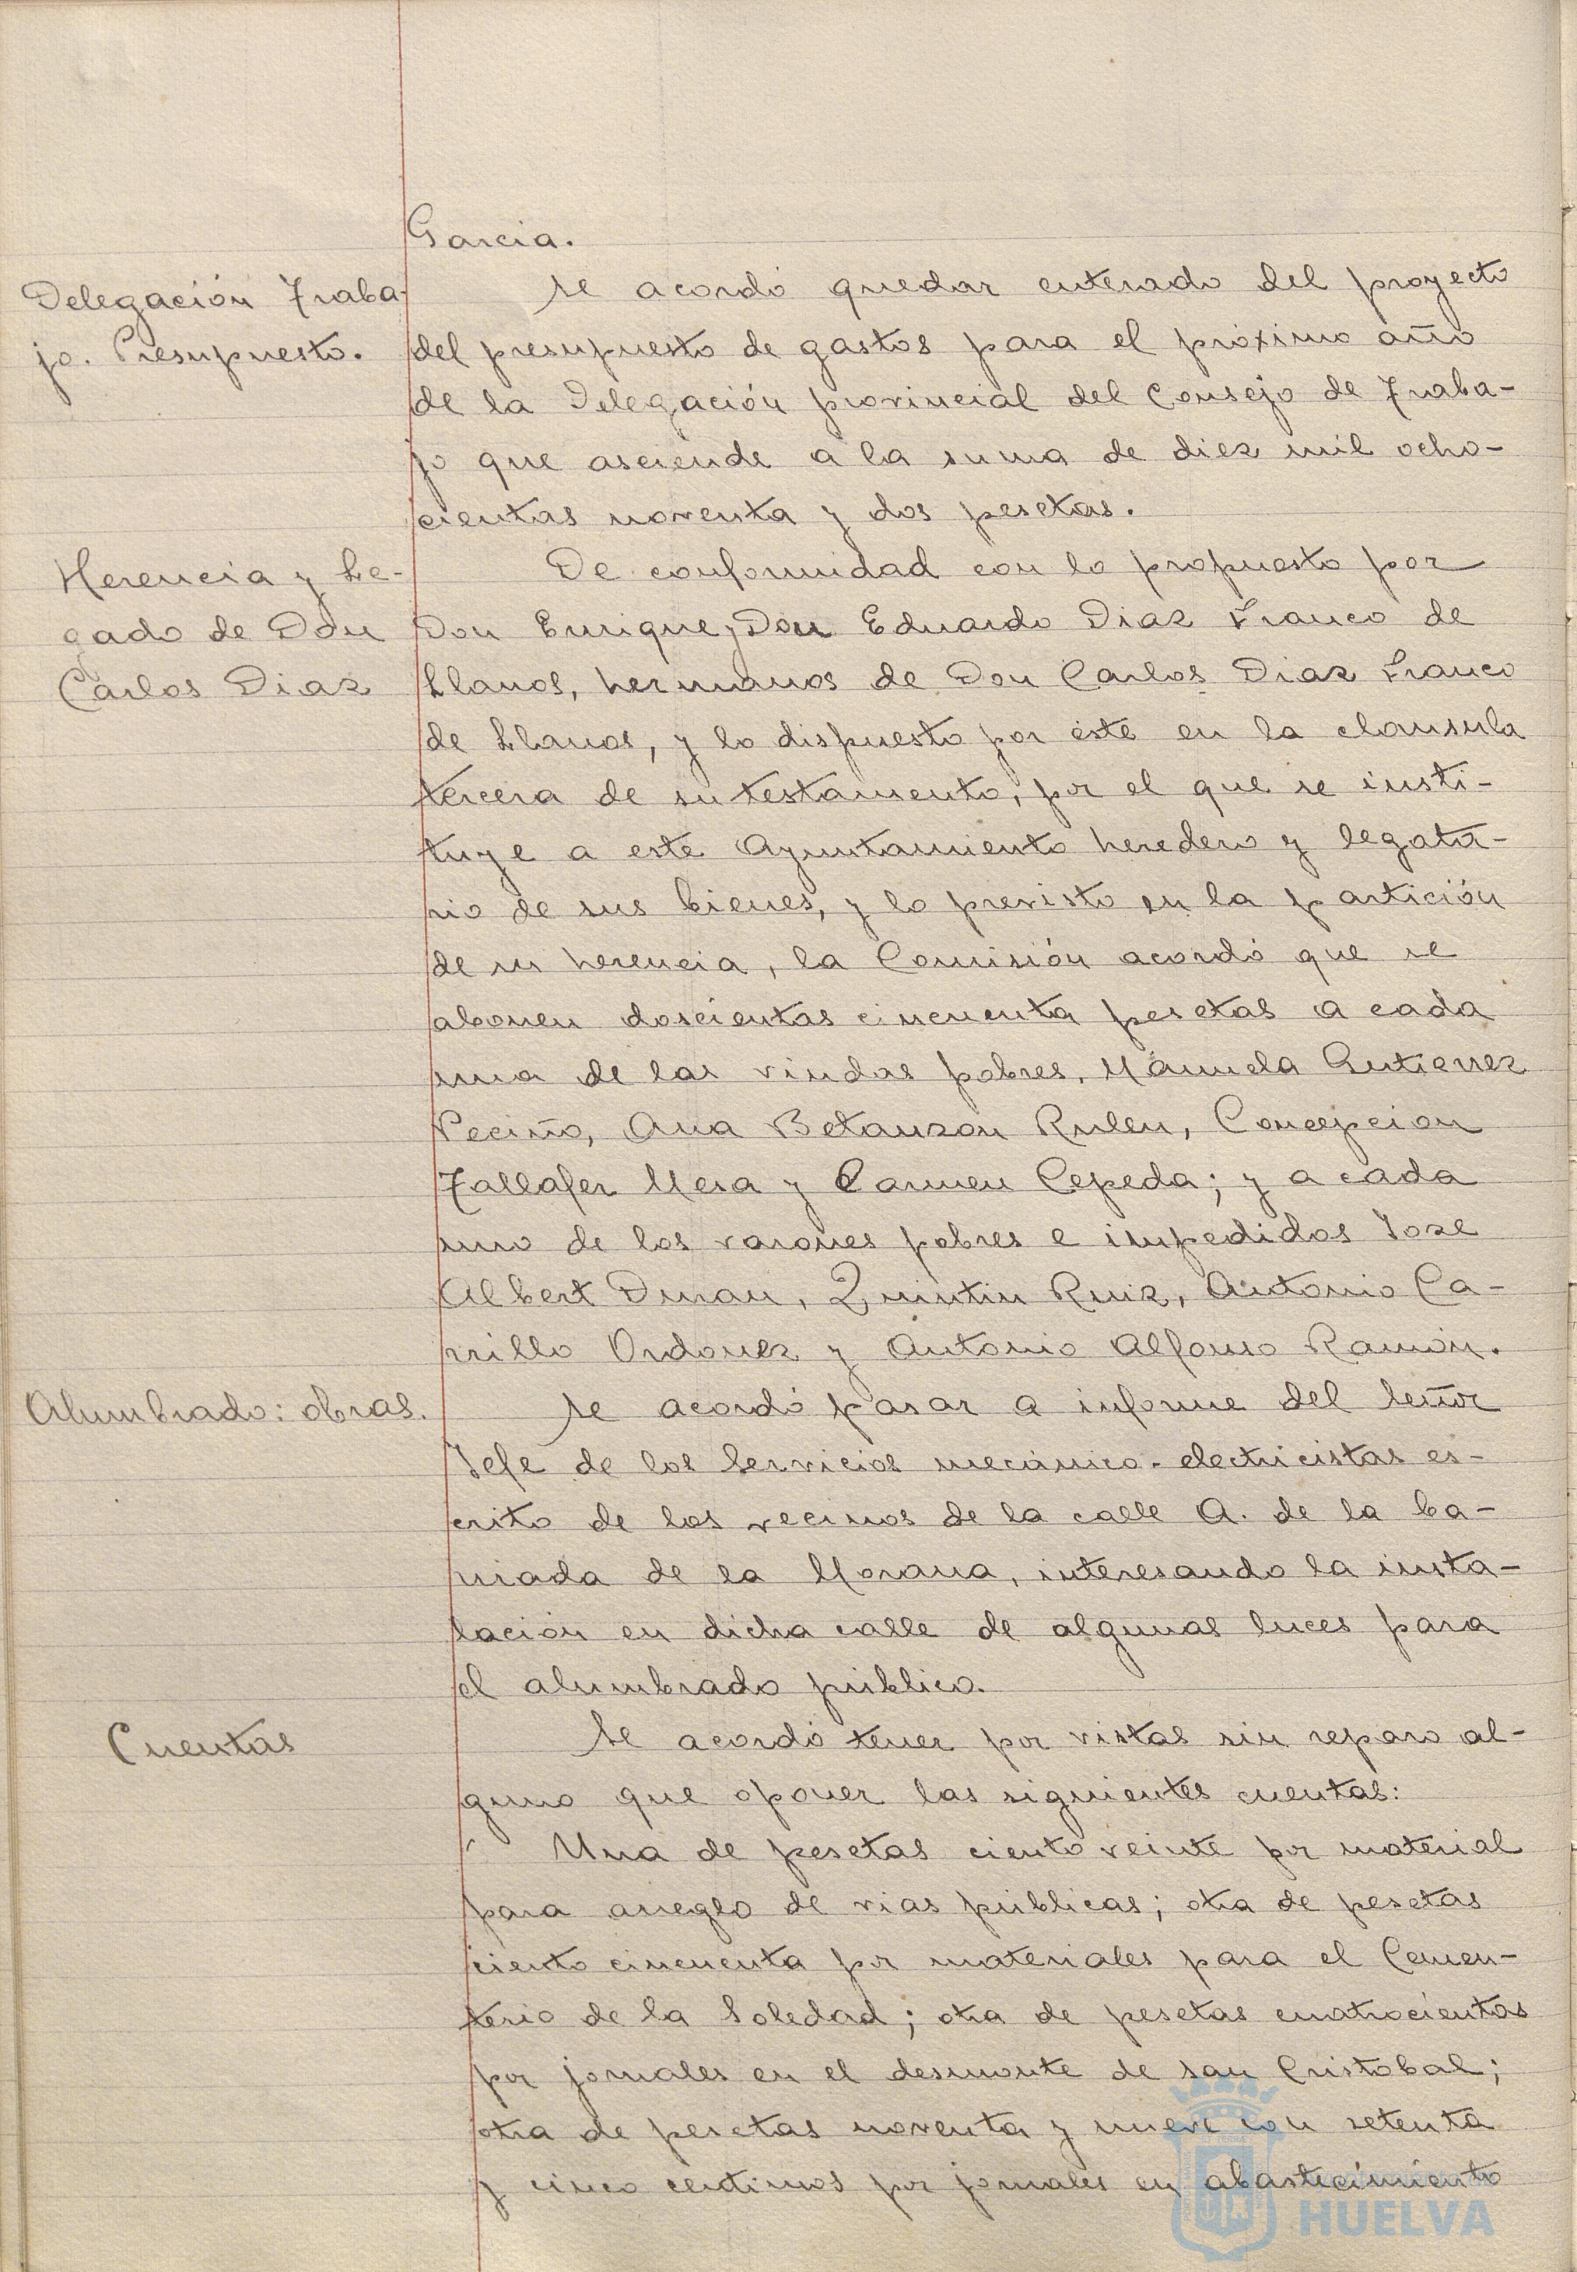 Garcia.
Delegación Traba-
jo. Presupuesto.
Se acordó quedar enterado del proyecto
del presupuesto de gastos para el próximo año
de la Delegación provincial del Consejo de Traba-
jo que asciende a la suma de diez mil ocho-
cientas noventa y dos pesetas.
Herencia y Le-
gado de Don
Carlos Diaz
De conformidad con lo propuesto por
Don Enrique y Don Eduardo Diaz Franco de
Llanos, hermanos de Don Carlos Diaz Franco
de Llanos, y lo dispuesto por éste en la clausula
tercera de su testamento, por el que se insti-
tuye a este Ayuntamiento heredero y legata-
rio de sus bienes, y lo previsto en la partición
de su herencia, la Comisión acordó que se
abonen doscientas cincuenta pesetas a cada
una de las viudas pobres, Manuela Gutierrez
Peciño, Ana Betanzon Rulen, Concepcion
Tallafer Mera y Carmen Cepeda; y a cada
uno de los varones pobres e impedidos Jose
Albert Duran, Quintin Ruiz, Antonio Ca-
rrillo Ordonez y Antonio Alfonso Ramón.
Alumbrado: obras.
Se acordó pasar a informe del Señor
Jefe de los Servicios mecánico-electricistas es-
crito de los vecinos de la calle A. de la ba-
rriada de la Morana, interesando la insta-
lación en dicha calle de algunas luces para
el alumbrado público.
Cuentas
Se acordó tener por vistas sin reparo al-
guno que oponer las siguientes cuentas:
Una de pesetas ciento veinte por material
para arreglo de vias públicas; otra de pesetas
ciento cincuenta por materiales para el Cemen-
terio de la Soledad; otra de pesetas cuatrocientas
por jornales en el desmonte de San Cristobal;
otra de pesetas noventa y nueve con setenta
y cinco centimos por jornales en abastecimiento
HUELVA